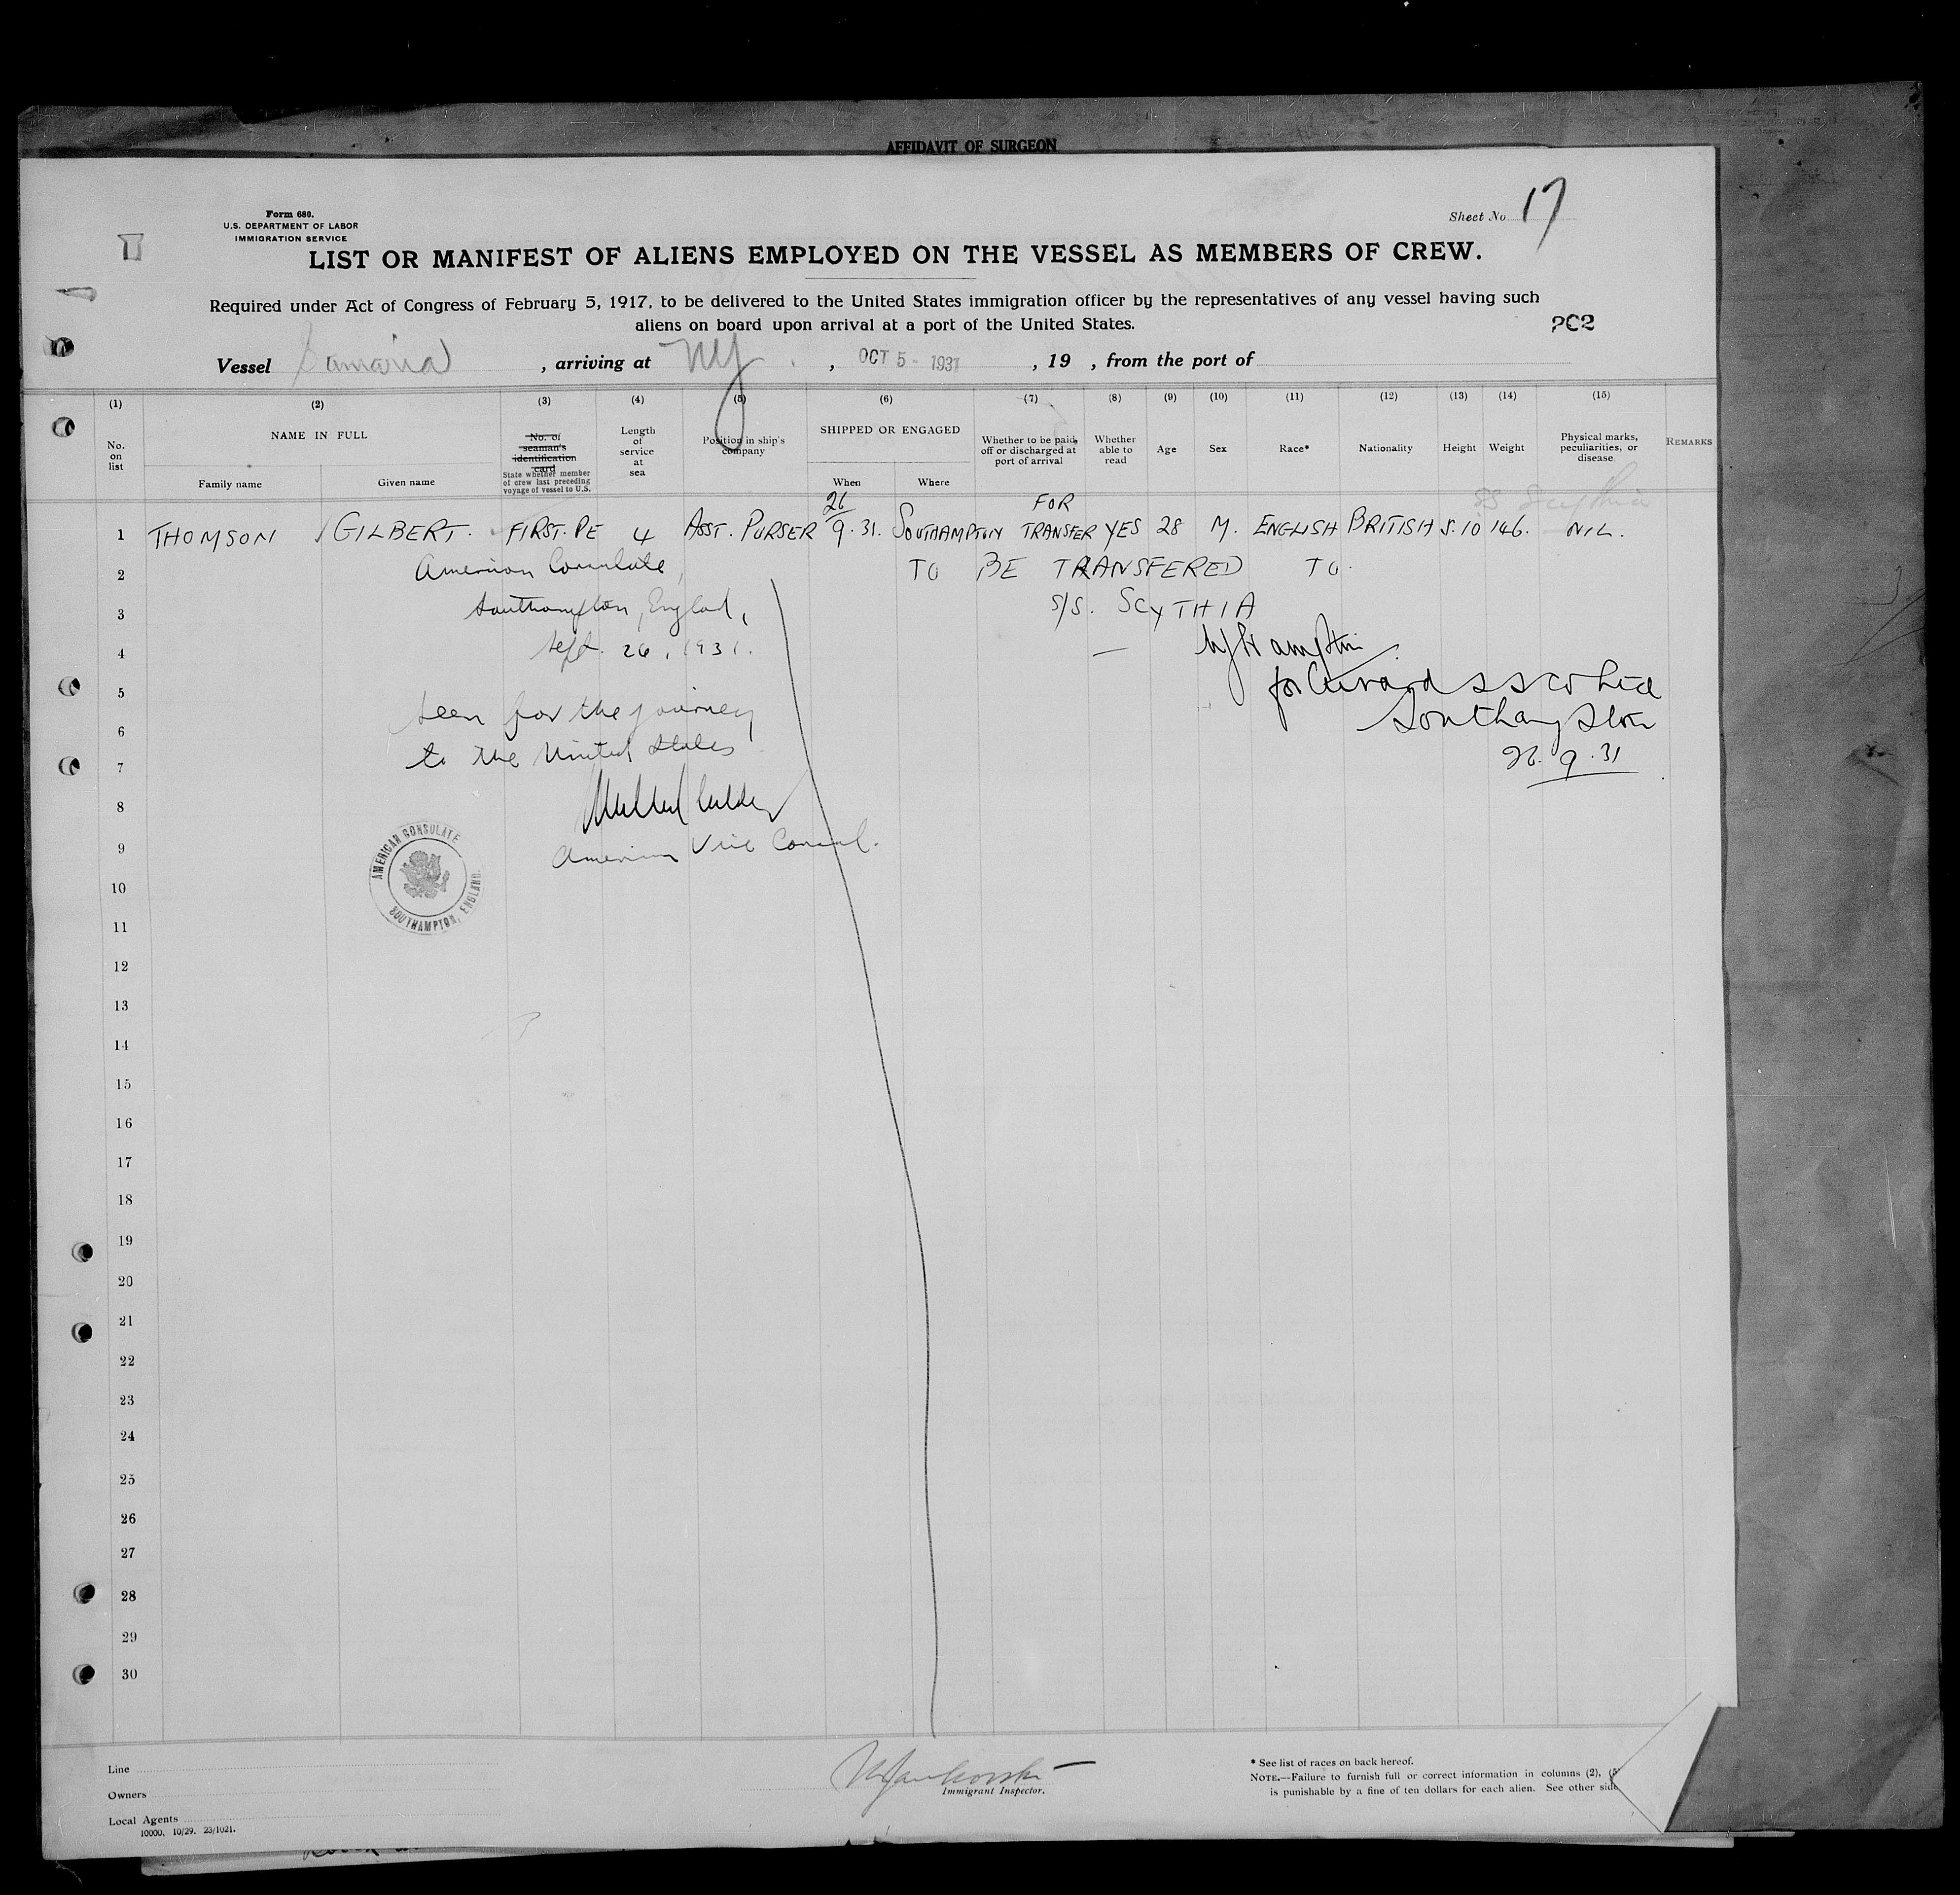 AFFIDAVIT OF SURGEON
Form 680.
U.S. DEPARTMENT OF LABOR
IMMIGRATION SERVICE
Sheet No 17
LIST OR MANIFEST OF ALIENS EMPLOYED ON THE VESSEL AS MEMBERS OF CREW.
Required under Act of Congress of February 5, 1917, to be delivered to the United States immigration officer by the representatives of any vessel having such
aliens on board upon arrival at a port of the United States.
202
Vessel Samaria, arriving at NY., OCT 5 - 1931, 19 , from the port of
(1) (2) (3) (4) (5) (6) (7) (8) (9) (10) (11) (12) (13) (14) (15)
No. on list
NAME IN FULL
Family name
Given name
No. of seaman's identification card
State whether member of crew last preceding voyage of vessel to U.S.
Length of service at sea
Position in ship's company
SHIPPED OR ENGAGED
When
Where
Whether to be paid off or discharged at port of arrival
Whether able to read
Age
Sex
Race*
Nationality
Height
Weight
Physical marks, peculiarities, or disease
REMARKS
SS Scythia
1 THOMSON GILBERT. FIRST. PE 4 ASST. PURSER 26/9.31. SOUTHAMPTON FOR TRANSFER YES 28 M. ENGLISH BRITISH 5.10 146. NIL.
2 American Consulate, TO BE TRANSFERED TO.
3 Southampton, England, S/S. SCYTHIA
4 Sept. 26, 1931.
5 for Cunard SS Co Ltd
6 Seen for the journey Southampton
7 to the United States 26.9.31
8
9 American Vice Consul.
AMERICAN CONSULATE
SOUTHAMPTON, ENGLAND.
10
11
12
13
14
15
16
17
18
19
20
21
22
23
24
25
26
27
28
29
30
Line
Owners
Local Agents
10000, 10/29. 23/1021.
Immigrant Inspector.
* See list of races on back hereof.
NOTE.—Failure to furnish full or correct information in columns (2), (5
is punishable by a fine of ten dollars for each alien. See other side